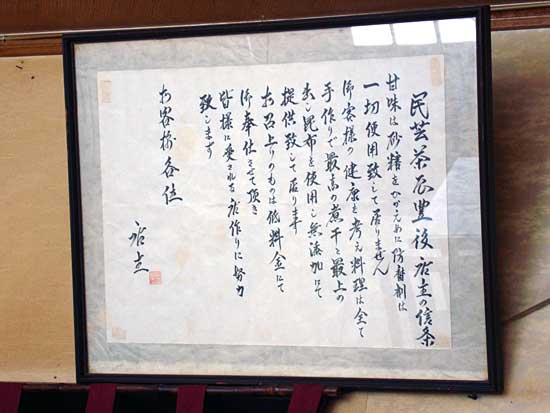 民芸茶屋豊後店主の信条
甘味は砂糖をひかえめに防腐剤は
一切使用致して居りません
御客様の健康を考え料理は全て
手作りで最高の煮干と最上の
出し昆布を使用し無添加にて
提供致して居ります
お召上りのものは低料金にて
御奉仕させて頂き
皆様に愛される店作りに努力
致します
お客様各位
店主